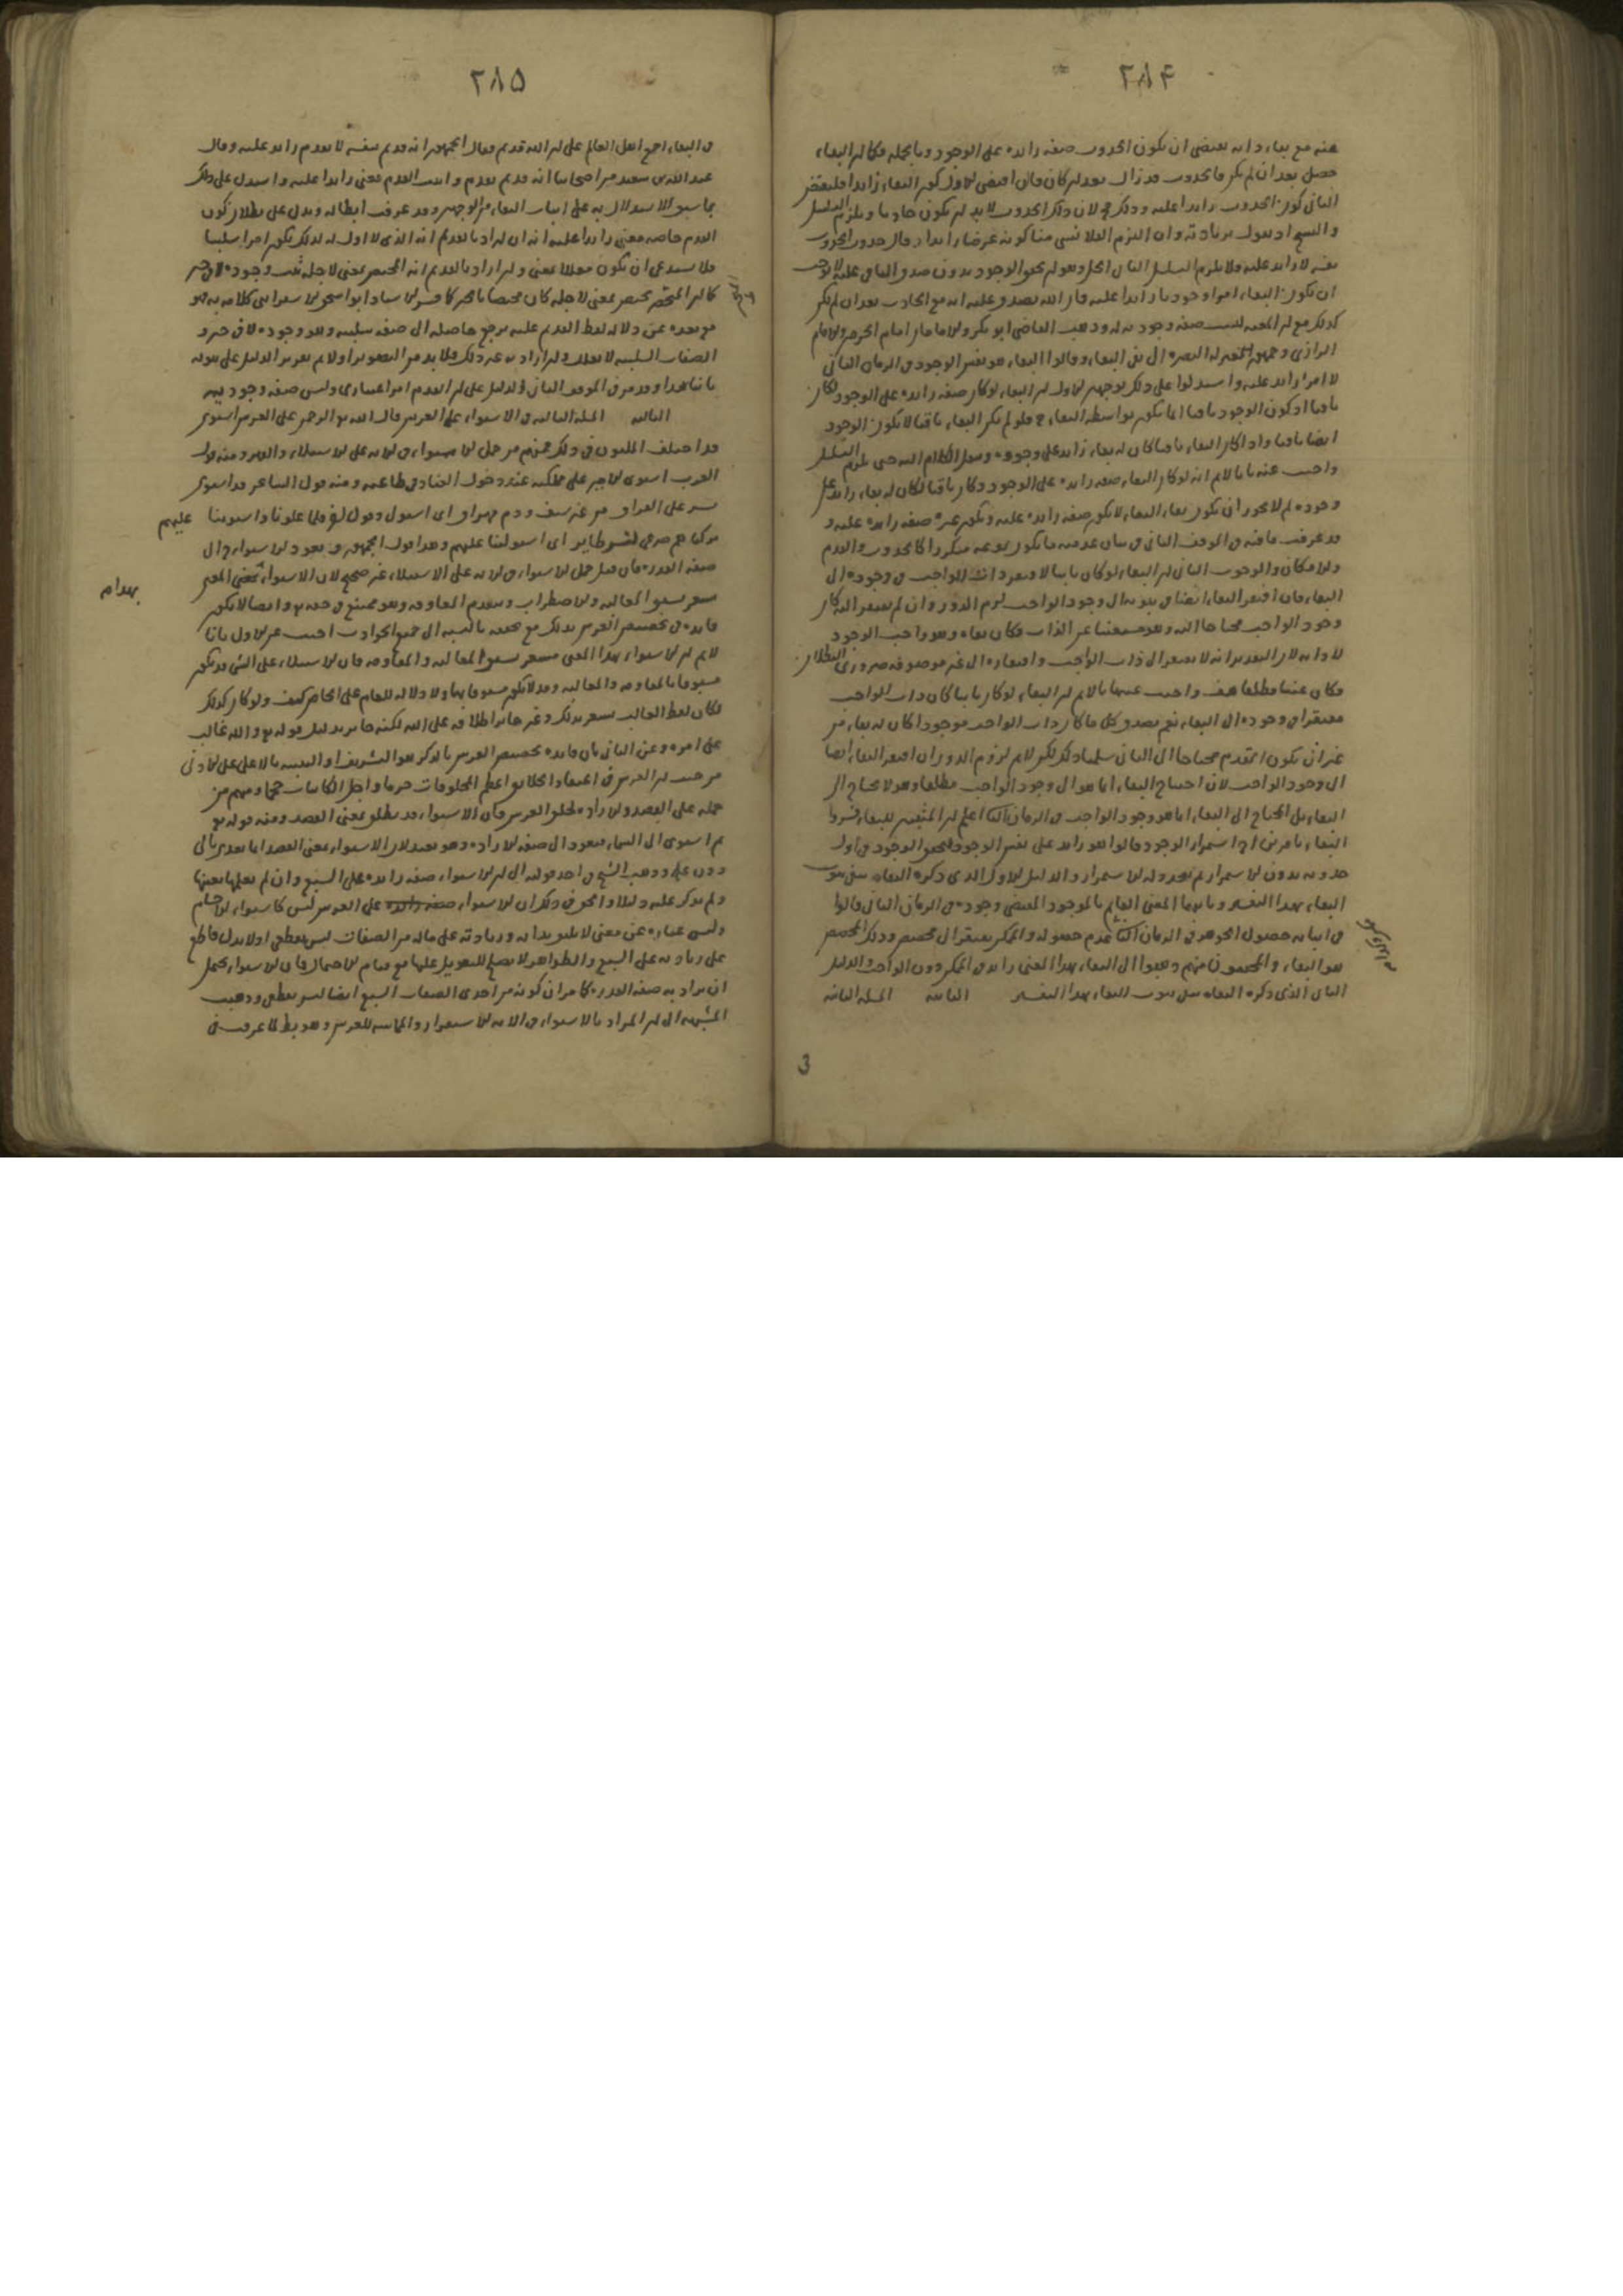 ٢٨۴
عنه مع بقاء ذاته يقتضى ان يكون الحدوث صفة زايدة على الوجود وبالجملة فكما ان البقاء
حصل بعد ان لم يكن فالحدوث قد زال بعد ان كان فان اقتضى الاول كون البقاء زايدا فليقتض
الثانى كون الحدوث زايدا عليه وذلك لان ذلك الحدوث لابد ان يكون حادثا ويلزم التسلسل
نفسه لا زايد عليه فلا يلزم التسلسل
ان يكون البقاء امرا وجوديا زايدا عليه فان الله يصدق عليه انه مع الحادث بعد ان لم يكن
كذلك مع ان المعية ليست صفة وجودية له وذهب القاضى ابو بكر والامامان امام الحرمين والامام
الرازى وجمهور معتزلة البصرة الى نفى البقاء وقالوا البقاء هو نفس الوجود فى الزمان الثانى
لا امر زايد عليه واستدلوا على ذلك بوجهين الاول ان البقاء لو كان صفة زايدة على الوجود لكان
باقيا اذ كون الوجود باقيا انما يكون بواسطة البقاء فلو لم يكن البقاء باقيا لا يكون الوجود
ايضا باقيا واذا كان البقاء باقيا كان له بقاء زايد على وجوده وننقل الكلام اليه حتى يلزم التسلسل
واجيب عنه بانا لا نم انه لو كان البقاء صفة زايدة على الوجود وكان باقيا لكان له بقاء زايد على
وجوده لم لا يجوز ان يكون بقاء البقاء لا يكون صفة زايدة عليه ويكون غيره صفة زايدة عليه و
قد عرفت ما فيه فى الموقف الثانى فى بيان عدمية ما يكون نوعه متكررا كالحدوث والقدم
والامكان والوجوب الثانى ان البقاء لو كان ثابتا لافتقر ذات الواجب فى وجوده الى
البقاء فان افتقر البقاء ايضا فى ثبوته الى وجود الواجب لزم الدور وان لم يفتقر اليه كان
وجود الواجب محتاجا اليه وهو مستغنيا عن الذات فكان بقاؤه هو واجب الوجود
لا ذاته لان التقدير انه لا يفتقر الى ذات الواجب وافتقاره الى غير موصوفه ضرورى البطلان
فكان غنيا مطلقا هف واجيب عنهما بانا لا نم ان البقاء لو كان ثابتا كان ذات الواجب
مفتقرا فى وجوده الى البقاء نعم يصدق كل ما كان ذات الواجب موجودا كان له بقاء من
غير ان يكون المقدم محتاجا الى التالى سلمنا ذلك لكن لا نم لزوم الدور ان افتقر البقاء ايضا
الى وجود الواجب لان احتياج البقاء انما هو الى وجود الواجب مطلقا وهو لا يحتاج الى
البقاء بل المحتاج الى البقاء انما هو وجود الواجب فى الزمان الثانى اعلم ان المثبتين للبقاء فسروا
البقاء بامرين احدهما استمرار الوجود وقالوا هو زايد على نفس الوجود لتحقق الوجود فى اول
حدوثه بدون الاستمرار ثم تجدد له الاستمرار والدليل الاول الذى ذكره النفاة ينفى ثبوت
البقاء بهذا التفسير وثانيهما المعنى القايم بالموجود المقتضى وجوده فى الزمان الثانى قالوا
فى اثباته حصول الجوهر فى الزمان الثانى عدم حصوله والممكن يفتقر الى مخصص وذلك المخصص
هو البقاء والمحققون منهم ذهبوا الى البقاء بهذا المعنى زايد فى الممكن دون الواجب والدليل
الثانى الذى ذكره النفاة ينفى ثبوت البقاء بهذا التفسير المسئلة الثانية
٢٨۵
فى البقاء اجمع اهل العالم على ان الله قديم فقال الجمهور انه قديم بنفسه لا بقدم زايد عليه وقال
عبد الله بن سعيد من اصحابنا انه قديم بقدم واثبت القدم معنى زايدا عليه واستدل على ذلك
بما سبق الاستدلال به على اثبات البقاء من الوجهين وقد عرفت ابطاله ويدل على بطلان كون
القدم خاصة معنى زايدا عليه انه ان اراد بالقديم انه الذى لا اول له لذلك يكون امرا سلبيا
فلا يستدعى ان يكون معللا بمعنى وان اراد بالقديم انه المختص بمعنى لاجله ثبت وجوده لا فى حيز
كما ان المتحيز مختص بمعنى لاجله كان مختصا بالحيز كما فسره الاستاد ابو اسحق الاسفراينى كلامه به فهو
مع بعده عن دلالة لفظ القديم عليه يرجع حاصله الى صفة سلبية وهو وجوده لا فى حيز و
الصفات السلبية لا تعلل وان اراد به غير ذلك فلابد من التصوير اولا ثم تقرير الدليل على ثبوته
ثانيا هذا وقد مر فى الموقف الثانى الدليل على ان القدم امر اعتبارى وليس صفة وجودية
الثالثة المسئلة الثالثة فى الاستواء على العرش قال الله تع الرحمن على العرش استوى
قد اختلف المليون فى ذلك فمنهم من حمل الاستواء فى الاية على الاستيلاء والقهر ومنه قول
العرب استوى الامير على مملكته عند دخول العباد فى طاعته ومنه قول الشاعر قد استوى
بشر على العراق من غير سيف ودم مهراق اى استولى وقول اخر فلما علونا واستوينا عليهم
تركناهم صرعى لنسر وطاير اى استولينا عليهم وهذا قول الجمهور ويعود الاستواء الى
صفة القدرة فان قيل حمل الاستواء فى الاية على الاستيلاء غير صحيح لان الاستواء بهذا المعنى
يشعر بسبق المغالبة والاضطراب وتقدم المقاومة وهو ممتنع فى حقه تع وايضا لا يكون
فايدة فى تخصيص العرش بذلك مع تحققه بالنسبة الى جميع الحوادث اجيب عن الاول بانا
لا نم ان الاستواء بهذا المعنى يشعر بسبق المغالبة والمقاومة فان الاستيلاء على الشئ قد يكون
مسبوقا بالمقاومة والمغالبة وقد لا يكون مسبوقا بها ولا دلالة للعام على الخاص كيف ولو كان كذلك
لكان لفظ الغالب يشعر بذلك وغير جايز اطلاقه على الله لكنه جايز بدليل قوله تع والله غالب
على امره وعن الثانى بان فايدة تخصيص العرش بالذكر هو التشريف او التنبيه بالاعلى على الادنى
من حيث ان العرش فى اعتقاد الخلايق اعظم المخلوقات جرما واجل الكاينات حجما ومنهم من
حمله على القصد والارادة لخلق العرش فان الاستواء قد يطلق بمعنى القصد ومنه قوله تع
ثم استوى الى السماء فيعود الى صفة الارادة وهو بعيد لان الاستواء بمعنى القصد انما يعدى بالى
دون على وذهب الشيخ فى احد قوليه الى ان الاستواء صفة زايدة على السبع وان لم نعلمها بعينها
ولم يذكر عليه دليلا والحق فى ذلك ان الاستواء على العرش ليس كاستواء الاجسام
وليس عبارة عن معنى لا يليق بذاته وزيادته على ماله من الصفات ليس بقطعى اذ لا دليل قاطع
على زيادته على السبع والظواهر لا يصلح للتعويل عليها مع قيام الاحتمال فان الاستواء يحتمل
ان يراد به صفة القدرة كما مر ان كونه من احدى الصفات السبع ايضا ليس بقطعى وذهبت
المشبهة الى ان المراد بالاستواء فى الاية الاستقرار والمماسة للعرش وهو بط لما عرفت فى